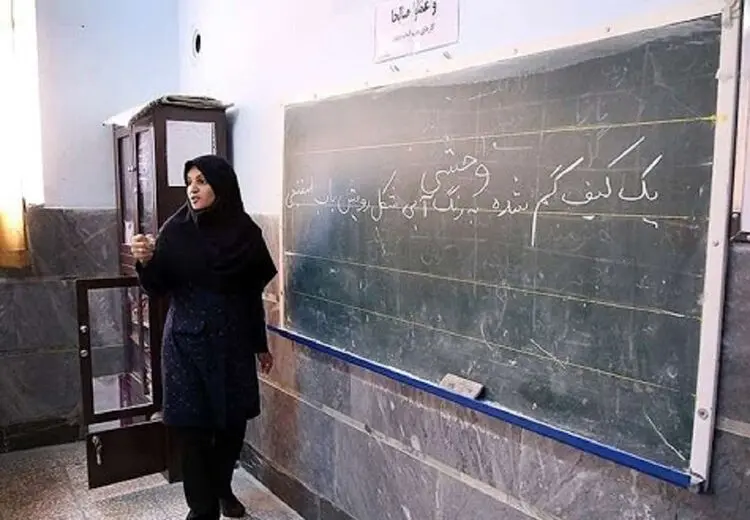 و عملوا صالحا
وحشتی
یک کیف گم شده به رنگ آبی شکل رویش باب اسفنجی